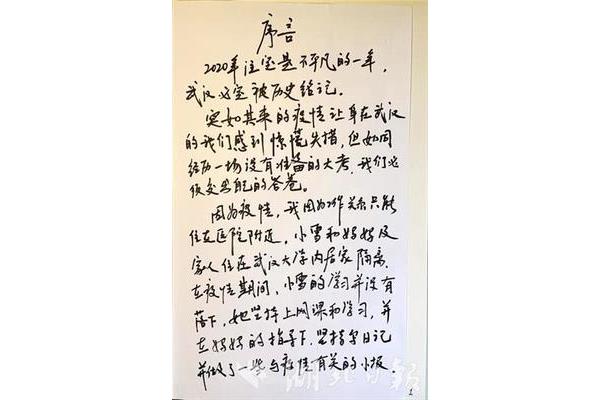 序言
2020年注定是不平凡的一年,
武汉必定被历史铭记.
突如其来的疫情让身在武汉
的我们感到惊慌失措,但如同
经历一场没有准备的大考,我们必
须交出自己的答卷。
因为疫情,我因为工作关系只能
住在医院附近,小雪和妈妈及
家人住在武汉大学内居家隔离.
在疫情期间,小雪的学习并没有
落下,她坚持上网课和学习,并
在妈妈的指导下,坚持写日记
并做了一些与疫情有关的小报
湖北日报
1